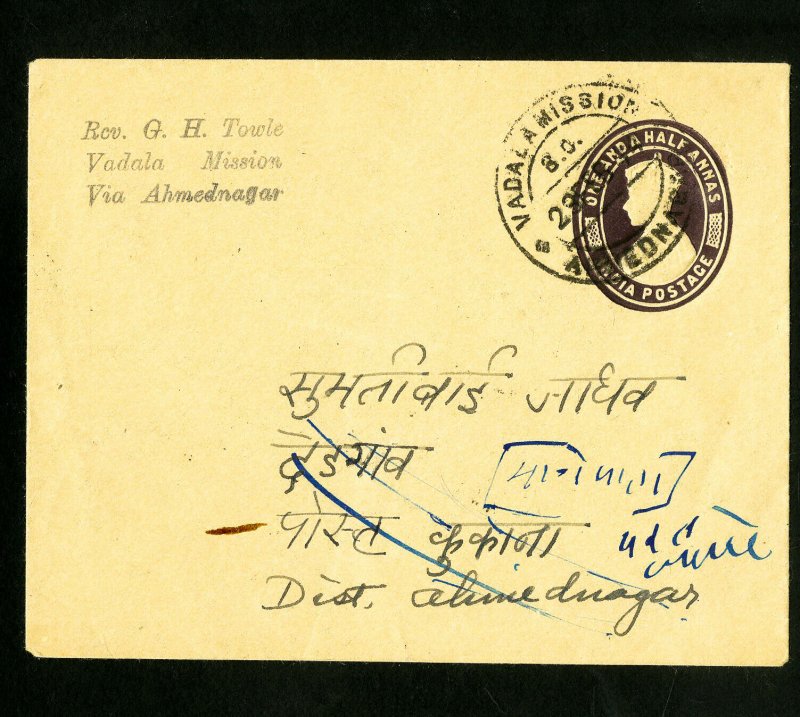 Rev. G. H. Towle
Vadala Mission
Via Ahmednagar
VADALA MISSION
B.O.
AHMEDNAGAR
ONE AND A HALF ANNAS
INDIA POSTAGE
सुमतीबाई जाधव
देडगांव
पोस्ट कुकाना
Dist. Ahmednagar